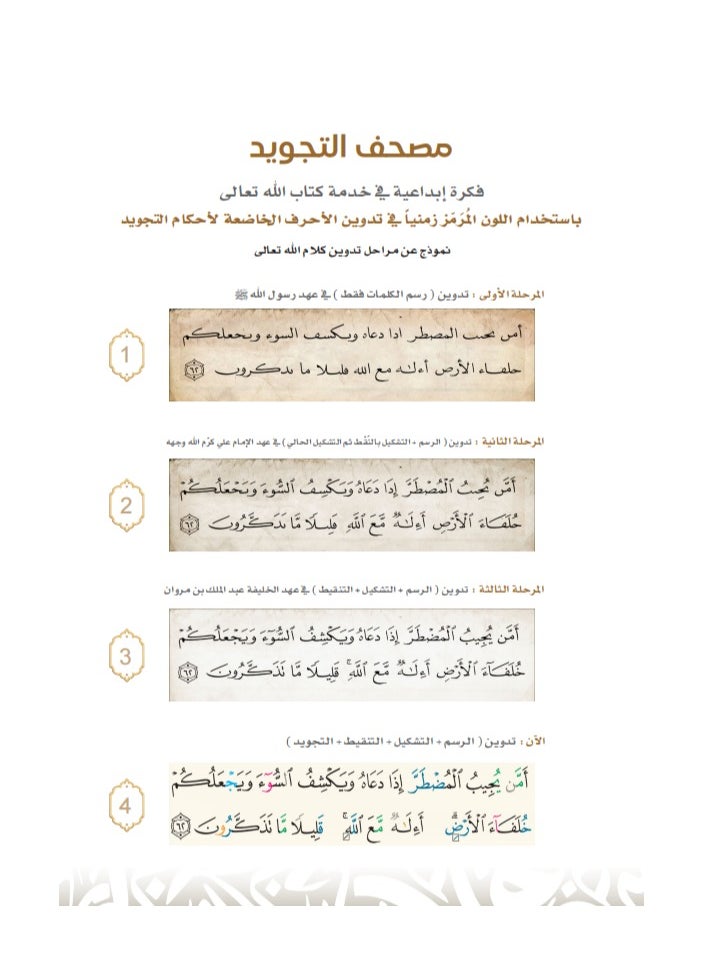 مصحف التجويد
فكرة إبداعية في خدمة كتاب الله تعالى
باستخدام اللون المُرَمَز زمنياً في تدوين الأحرف الخاضعة لأحكام التجويد
نموذج عن مراحل تدوين كلام الله تعالى
المرحلة الأولى : تدوين ( رسم الكلمات فقط ) في عهد رسول الله ﷺ
1
امں ىحىٮ المصطر ادا دعاه وىكسف السوء وىحعلكم
حلفاء الأرص أءلـه مع الله فلىلا ما ىدكروں ٦٢
المرحلة الثانية : تدوين ( الرسم + التشكيل بالنُقَط ثم التشكيل الحالي ) في عهد الإمام علي كرّم الله وجهه
2
أَمَّں ىُحِىٮُ ٱلۡمُصۡطَرَّ إِدَا دَعَاهُ وَىَكۡسِفُ ٱلسُّوٓءَ وَىَحۡعَلُكُمۡ
حُلَفَآءَ ٱلۡأَرۡصِ أَءِلَٰهٞ مَّعَ ٱللَّهِ فَلِىلٗا مَّا ىَدَكَّرُوںَ ٦٢
المرحلة الثالثة : تدوين ( الرسم + التشكيل + التنقيط ) في عهد الخليفة عبد الملك بن مروان
3
أَمَّن يُجِيبُ ٱلۡمُضۡطَرَّ إِذَا دَعَاهُ وَيَكۡشِفُ ٱلسُّوٓءَ وَيَجۡعَلُكُمۡ
خُلَفَآءَ ٱلۡأَرۡضِ أَءِلَٰهٞ مَّعَ ٱللَّهِۚ قَلِيلٗا مَّا تَذَكَّرُونَ ٦٢
الآن : تدوين ( الرسم + التشكيل + التنقيط + التجويد )
4
أَمَّن يُجِيبُ ٱلۡمُضۡطَرَّ إِذَا دَعَاهُ وَيَكۡشِفُ ٱلسُّوٓءَ وَيَجۡعَلُكُمۡ
خُلَفَآءَ ٱلۡأَرۡضِۗ أَءِلَٰهٞ مَّعَ ٱللَّهِۚ قَلِيلٗا مَّا تَذَكَّرُونَ ٦٢